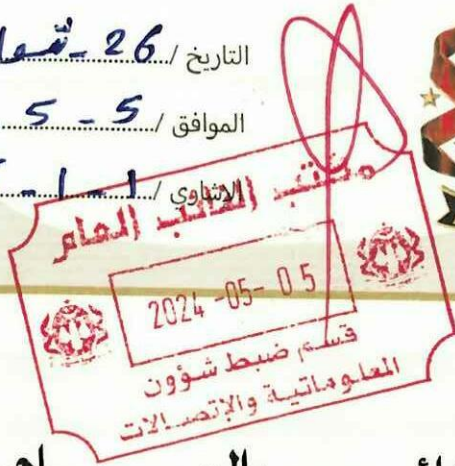 التاريخ / 26 - شوال
الموافق / 5 - 5
الإشاري / 1 - 1 -
مكتب النائب العام
2024 -05- 05
قسم ضبط شؤون
المعلوماتية والإتصالات